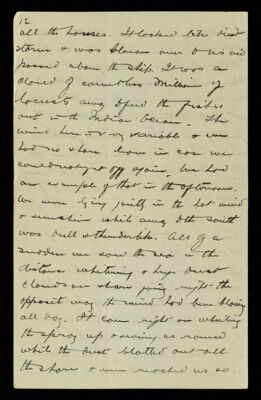 12
all the houses. It looked like dust
storm & was blown over to us and
passed above the ship. It was a
cloud of countless millions of
locusts away to feed the fishes
out in the Indian Ocean. The
wind here is very variable & we
had no shore leave in case we
could not get off again. We had
an example of that in the afternoon.
We were lying quietly in the hot wind
& sunshine while away to the south
was dull & thunderlike. All of a
sudden we saw the sea in the
distance whitening & huge dust
clouds on shore going right the
opposite way the wind had been blowing
all day. It came right on whirling
the spray up & swung us round
while the dust blotted out all
the shore & even reached us so